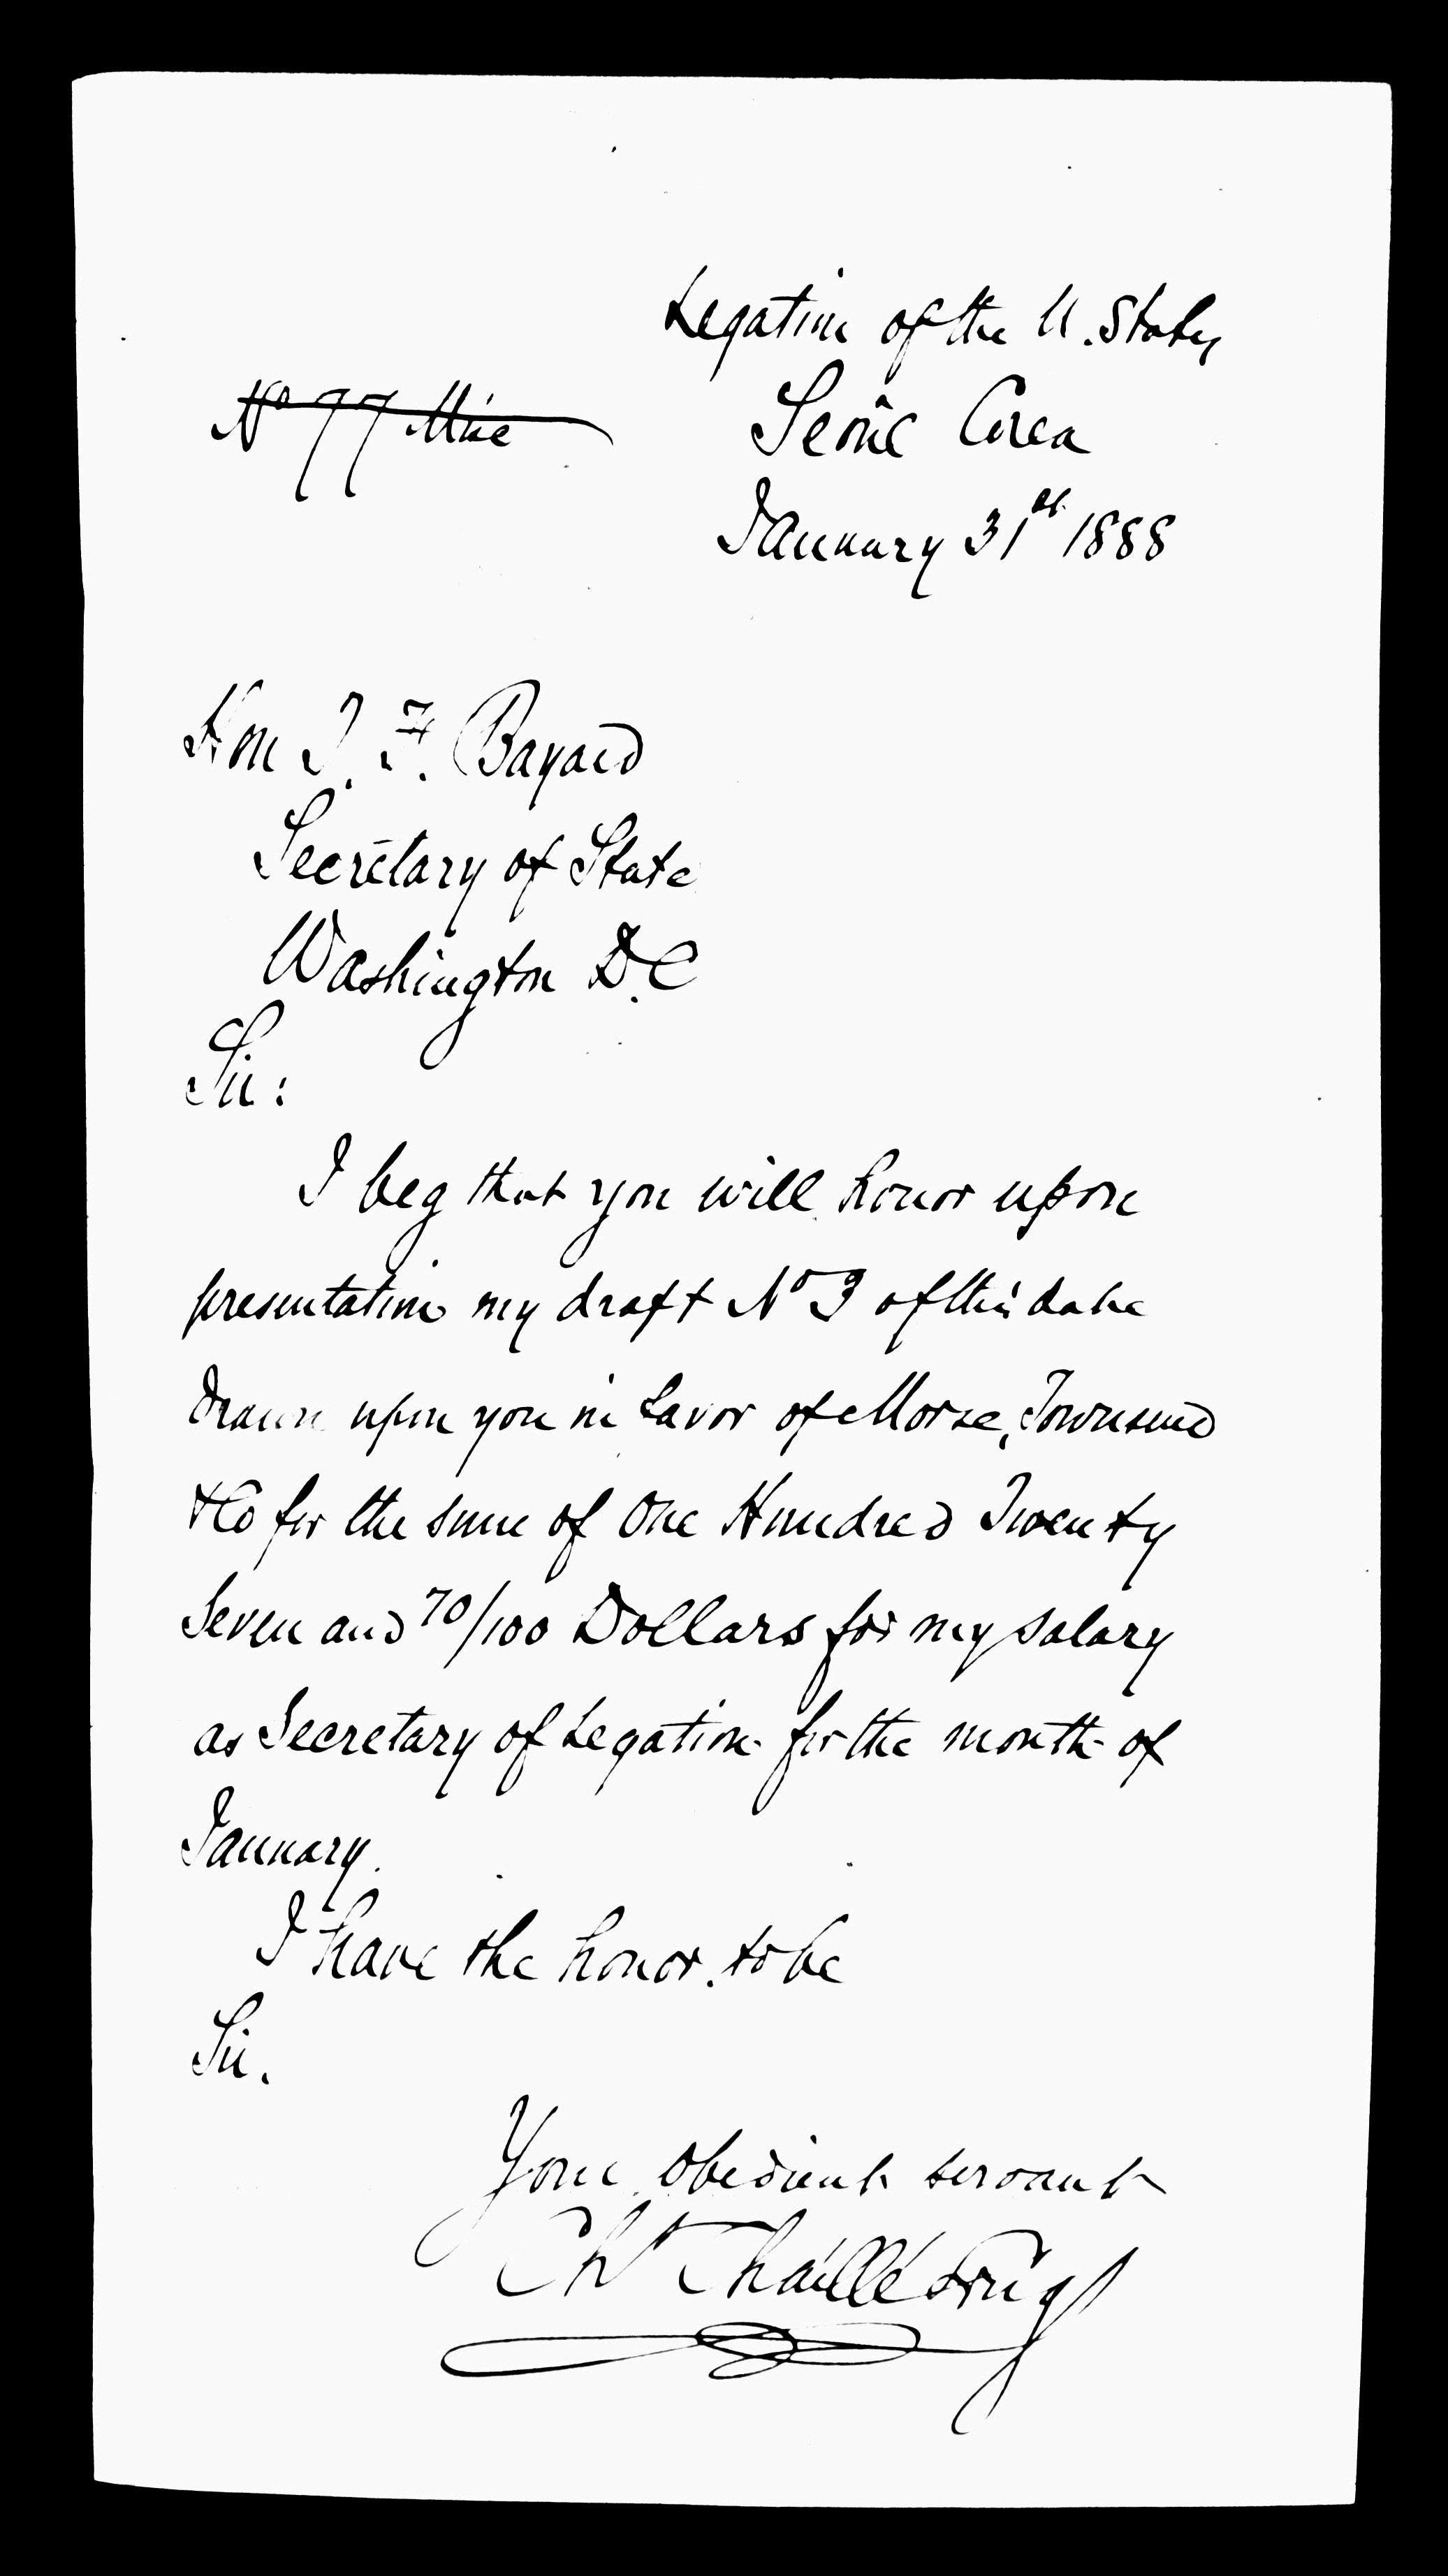 Legation of the U. States
Seoul Corea
No 77 Misc
January 31st 1888
Hon T. F. Bayard
Secretary of State
Washington D.C
Sir:
I beg that you will honor upon
presentation my draft No 3 of this date
drawn upon you in favor of Morse, Townsend
& Co for the sum of One Hundred Twenty
Seven and 70/100 Dollars for my salary
as Secretary of Legation for the month of
January.
I have the honor to be
Sir.
Your obedient servant
Ch Chaillé Long